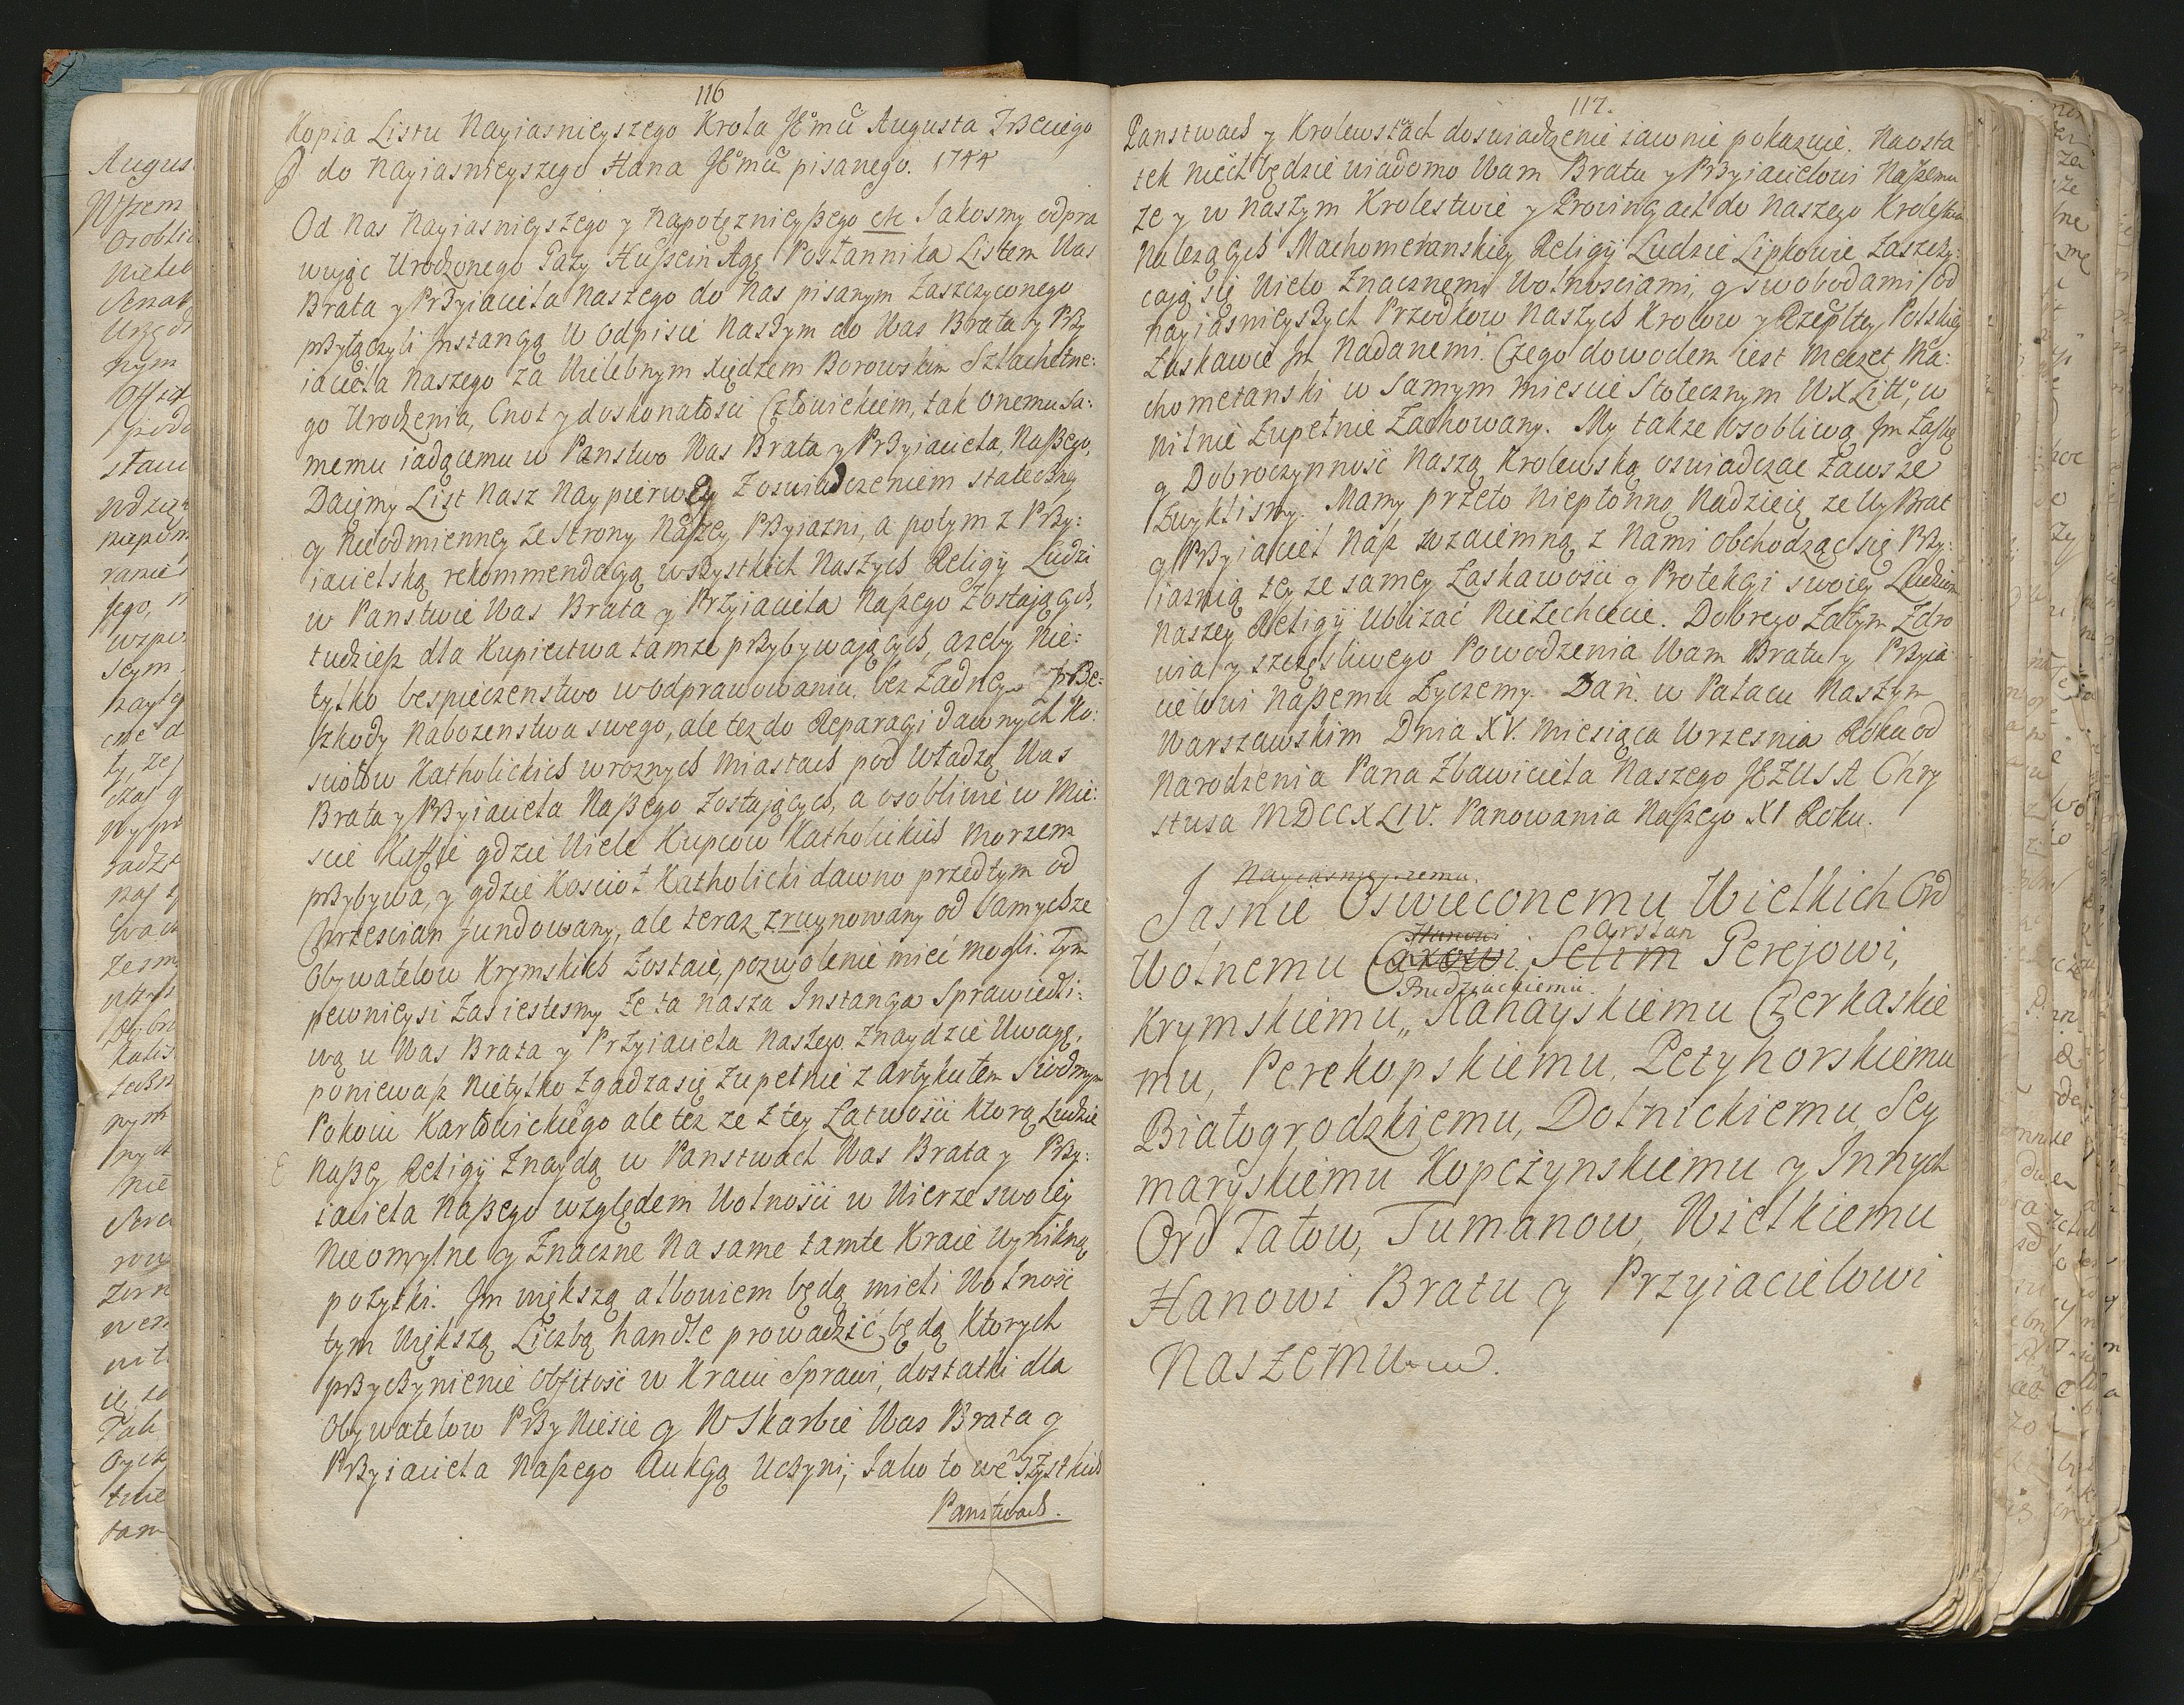 116
Kopia Listu Nayiasnieyszego Krola JEgomci Augusta Trzeciego
do Nayiasnieyszego Hana JEgomci pisanego. 1744
Od Nas Nayiasnieyszego y Napotęznieyßego etc Jakosmy odpra
wując Urodzonego Gazy Hußein Agę Posłannika Listem Was
Brata y Przyiaciela Naszego do Nas pisanym Zaszczyconego
przyłączyli Instancyą w odpisie Naszym do Was Brata y Przy
iaciela Naszego za Wielebnym Xiędzem Borowskim Szlachetne:
go Urodzenia, Cnot y doskonałosci Człowiekiem, tak onemu sa:
memu iadącemu w Panstwo Was Brata y Przyiaciela, Naßego,
Daięmy List Nasz Naypierwey Z oswiadczeniem stateczney
y Nieodmienney ze strony Naßey Przyiazni, a potym z Przy:
iacielską rekommendacyą wszystkich Naszych Religij Ludzi
w Panstwie Was Brata y Przyiaciela Naßego Zostaiących,
tudzieß dla Kupiectwa tamze przybywaiących, azeby Nie:
tylko bespieczenstwo w odprawowaniu, bez Zadney prze:
szkody Nabozenstwa swego, ale tez do Reparacyi dawnych Ko:
sciołow Katholickich w roznych Miastach pod Władzą Was
Brata y Przyiaciela Naßego Zostaiących, a osobliwie w Mie:
scie Kaffie gdzie Wiele Kupcow Katholickich Morzem
przybywa, y gdzie Koscioł Katholicki dawno przedtym od
Chrzescian fundowany, ale teraz zruynowany od Samychze
Obywatelow Krymskich Zostaie, pozwolenie miec mogli. Tym
pewnieysi Zas iestesmy Ze ta Nasza Instancya Sprawiedli:
wą u Was Brata y Przyiaciela Naszego Znaydzie Uwagę,
poniewaß Nietylko Zgadza się Zupełnie z Artykułem Siodmym
Pokoiu Karłowickiego ale tez ze z tey Łatwosci ktorą Ludzie
Naßey Religij Znaydą w Panstwach Was Brata y Przy:
iaciela Naßego względem Wolnosci w Wierze swoiey
Nieomylne y Znaczne Na same tamte Kraie Wynikną
pożytki. Im większą albowiem będą mieli Wolność
tym Większą Liczbą handle prowadzić będą Ktorych
przyczynienie Obfitość w Kraiu Sprawi, dostatki dla
Obywatelow Przyniesie y W Skarbie Was Brata y
Przyiaciela Naßego Aukcyą Uczyni, Jako to we wszystkich
Panstwach.
117.
Panstwach y Krolewstach doswiadczenie iawnie pokazuie. Naosta
tek niech będzie wiadomo Wam Bratu y Przyiacielowi Naßemu
ze y w Naszym Krolestwie y Prowincyach do Naszego Krolestwa
Nalezących Machometanskiey Religij Ludzie Lipkowie Zaszczy:
caią się Wielo Znacznemi Wolnosciami, y swobodami od
Nayiasnieyszych Przodkow Naszych Krolow y Rzeczpltey Polskiey
Łaskawie Im Nadanemi. Czego dowodem iest Meczet Ma:
chometanski w Samym Miescie Stołecznym WXLitt°, w
Wilnie Zupełnie Zachowany. My takze Osobliwą Im Łaskę
y Dobroczynność Naszą Krolewską oswiadczac Zawsze
Zwyklismy. Mamy przeto Niepłonną Nadzieię ze Wy Brat
y Przyiaciel Naß wzaiemną z Nami obchodząc się Przy:
iaznią tey ze samey Łaskawosci y Protekcyi swoiey Ludziom
Naszey Religij Ubliżać Niezechcecie. Dobrego Zatym Zdro
wia y szczęsliwego Powodzenia Wam Bratu y Przyia
cielowi Naßemu Życzemy. Dań. w Pałacu Naszym
Warszawskim Dnia XV. Miesiąca Wrzesnia Roku od
Narodzenia Pana Zbawiciela Naszego JEZUSA Chry
stusa MDCCXLIV. Panowania Naßego XI Roku.
Nayiasnieyszemu.
Jasnie Oswieconemu Wielkich Ord
Hanowi Arslan
Wolnemu Carowi Selim Gerejowi,
Budziackiemu.
Krymskiemu,, Nahayskiemu Czerkaskie
mu, Perekopskiemu, Petyhorskiemu
Białogrodzkiemu, Dolnickiemu, Sey
maryskiemu Kopczynskiemu y Innych
Ord Tatow, Tumanow, Wielkiemu
Hanowi Bratu y Przyiacielowi
Naszemu.